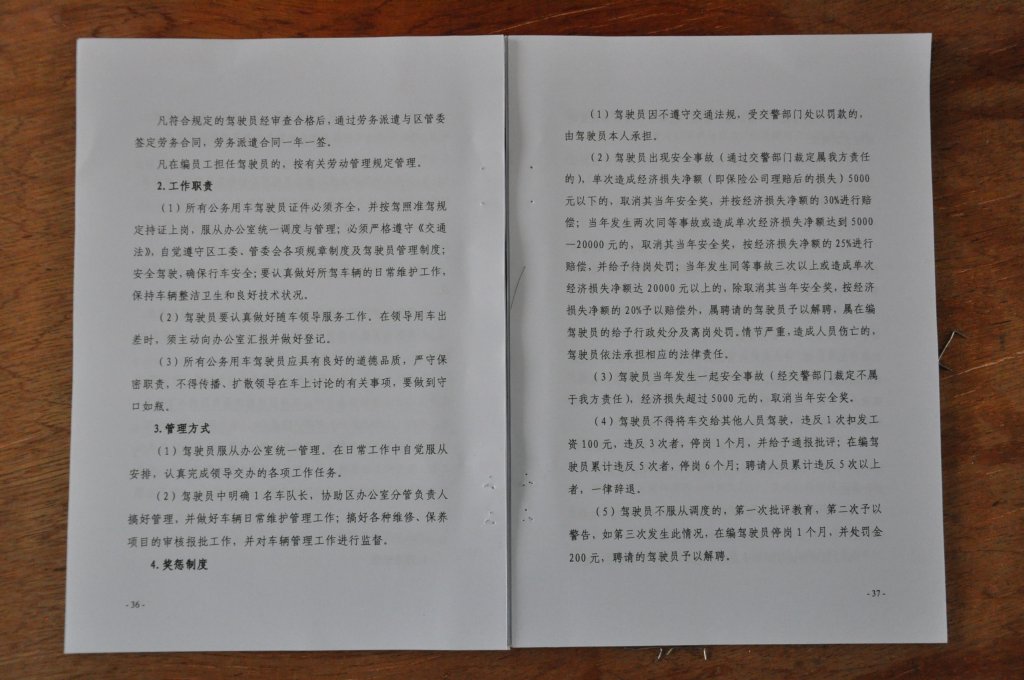 凡符合规定的驾驶员经审查合格后，通过劳务派遣与区管委
签定劳务合同，劳务派遣合同一年一签。
凡在编员工担任驾驶员的，按有关劳动管理规定管理。
2.工作职责
（1）所有公务用车驾驶员证件必须齐全，并按驾照准驾规
定持证上岗，服从办公室统一调度与管理；必须严格遵守《交通
法》，自觉遵守区工委、管委会各项规章制度及驾驶员管理制度；
安全驾驶，确保行车安全；要认真做好所驾车辆的日常维护工作，
保持车辆整洁卫生和良好技术状况。
（2）驾驶员要认真做好随车领导服务工作。在领导用车出
差时，须主动向办公室汇报并做好登记。
（3）所有公务用车驾驶员应具有良好的道德品质，严守保
密职责，不得传播、扩散领导在车上讨论的有关事项，要做到守
口如瓶。
3.管理方式
（1）驾驶员服从办公室统一管理。在日常工作中自觉服从
安排，认真完成领导交办的各项工作任务。
（2）驾驶员中明确1名车队长，协助区办公室分管负责人
搞好管理，并做好车辆日常维护管理工作；搞好各种维修、保养
项目的审核报批工作，并对车辆管理工作进行监督。
4.奖惩制度
- 36 -
（1）驾驶员因不遵守交通法规，受交警部门处以罚款的，
由驾驶员本人承担。
（2）驾驶员出现安全事故（通过交警部门裁定属我方责任
的），单次造成经济损失净额（即保险公司理赔后的损失）5000
元以下的，取消其当年安全奖，并按经济损失净额的30%进行赔
偿；当年发生两次同等事故或造成单次经济损失净额达到5000
—20000元的，取消其当年安全奖，按经济损失净额的25%进行
赔偿，并给予待岗处罚；当年发生同等事故三次以上或造成单次
经济损失净额达20000元以上的，除取消其当年安全奖，按经济
损失净额的20%予以赔偿外，属聘请的驾驶员予以解聘，属在编
驾驶员的给予行政处分及离岗处罚。情节严重，造成人员伤亡的，
驾驶员依法承担相应的法律责任。
（3）驾驶员当年发生一起安全事故（经交警部门裁定不属
于我方责任），经济损失超过5000元的，取消当年安全奖。
（4）驾驶员不得将车交给其他人员驾驶，违反1次扣发工
资100元，违反3次者，停岗1个月，并给予通报批评；在编驾
驶员累计违反5次者，停岗6个月；聘请人员累计违反5次以上
者，一律辞退。
（5）驾驶员不服从调度的，第一次批评教育，第二次予以
警告，如第三次发生此情况，在编驾驶员停岗1个月，并处罚金
200元，聘请的驾驶员予以解聘。
- 37 -